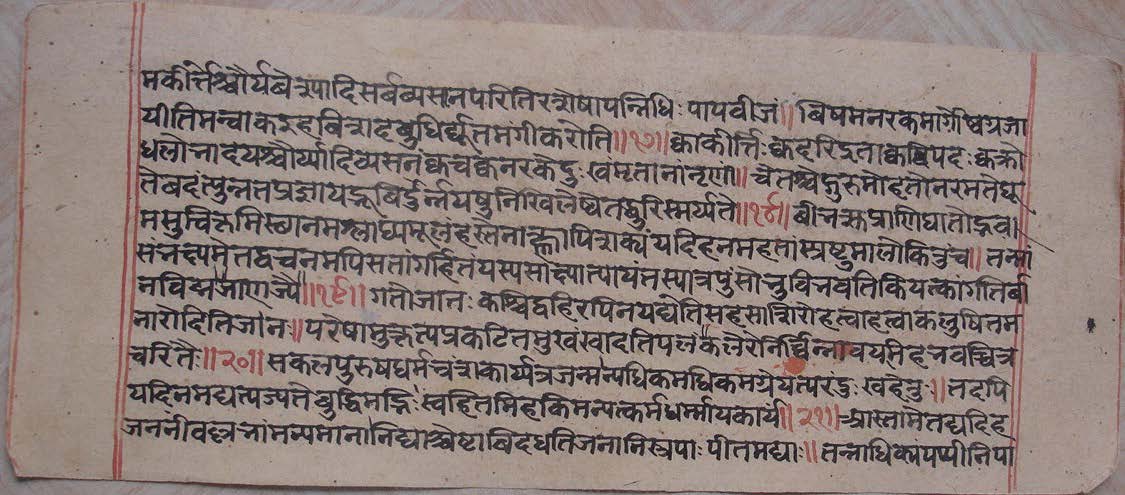 मकीर्त्तेश्चौर्यवेश्यादिसर्वव्यसनपतिरशेषापन्निधिः पापवीजं॥ बिषमनरकमार्गेष्वग्रजा
यीतिमत्वाक इह विशदबुधिर्द्यूतमंगीकरोति॥१७॥ क्वाकीर्त्तिः क्व दरिद्रता क्व बिपदः क्व क्रो
धलोभादयश्चौर्यादिव्यसनं क्व च क्व नरके दुःखं मृतानां नृणां॥ चेतश्चेद्गुरुमोहतो न रमते द्यू
ते बदंत्युन्नतप्रज्ञा यद्भुबि दुर्न्नयेषु निखिलेष्वेतद्धुरि स्मर्यते॥१८॥ बीभत्सप्राणिघातोद्भवा
मसुचि कृमिस्थानमश्लाध्यमूलं हस्तेनाक्ष्णापि शक्यं यदिह न महतां स्प्रष्टुमालोकितुं च॥ तन्मां
सं भक्ष्यमेतद्वचनमपि सतां गर्हितं यस्य साक्षात्पापं तस्यात्र पुंसो भुवि भवति कियत्का गतिर्वा
न विद्म
गतो जानः कश्चिद्वहिरपि न यद्येति सहसा शिरो हत्वा हत्वा कलुषितम
ना रोदिति जनः॥ परेषामुत्कृत्य प्रकटितमुखं खादति पलं कले रे निर्बिन्ना वयमिह भवच्चित्र
चरितैः॥२०॥ सकलपुरुषधर्मभ्रंशकार्यत्र जन्मन्यधिकमधिकमग्रे यत्परं दुःखहेतुः॥ तदपि
यदि न मद्यं त्यज्यते बुद्धिमद्भिः स्वहितमिह किमन्यत्कर्म धर्म्माय कार्यं॥२१॥ आस्तामेतद्यदिह
जननीं वल्लभां मन्यमाना निंद्याश्चेष्टा बिदधति जना निस्त्रपाः पीतमद्याः॥ तत्राधिक्यं पथि निपा